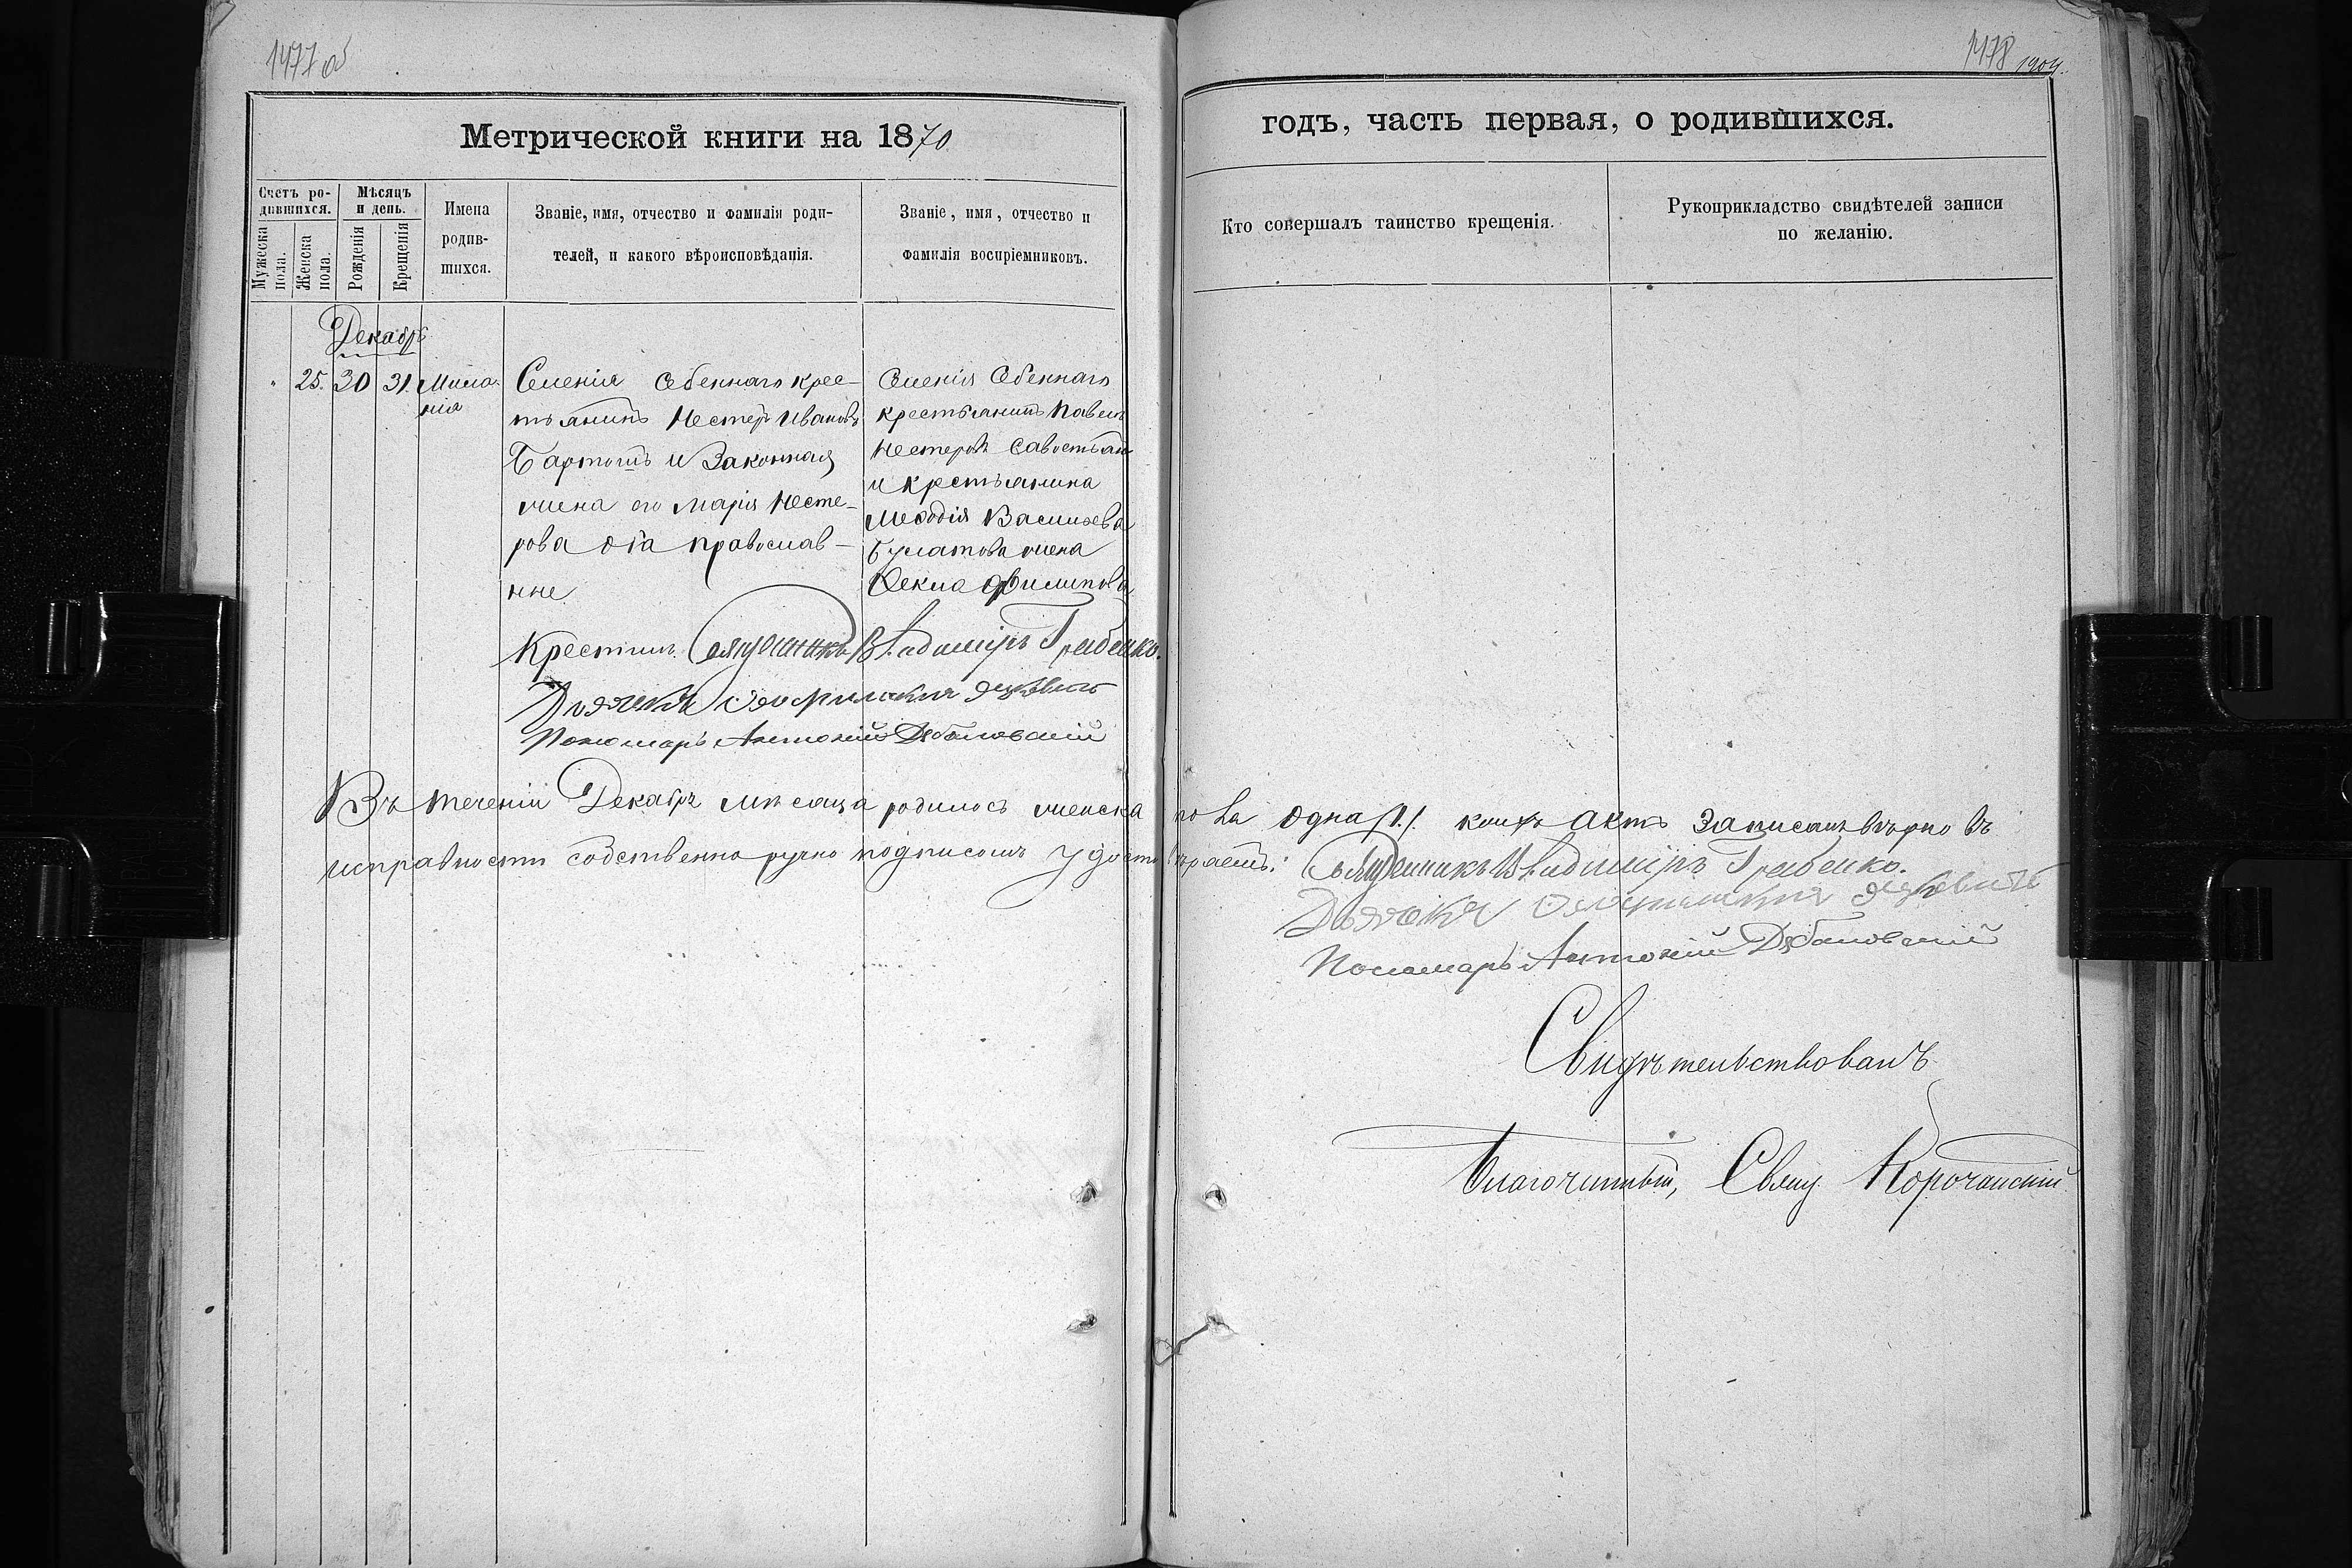 1477 об
1478
1904.
Метрической книги на 1870
годъ, часть первая, о родившихся.
Счетъ ро-
дившихся.
Мужеска
пола.
Женска
пола.
Мѣсяцъ
и день.
Рожденія
Крещенія
Имена
родив-
шихся.
Званіе, имя, отчество и фамилія роди-
телей, и какого вѣроисповѣданія.
Званіе, имя, отчество и
фамилія воспріемниковъ.
Кто совершалъ таинство крещенія.
Рукоприкладство свидѣтелей записи
по желанію.
Декабрь
" 25. 30 31. Мила-
нія
Селенія Себеннаго крес-
тьянинъ Нестеръ Ивановъ
Бартошъ и Законная
жена его Марія Несте-
рова оба православ-
нне
Селенія Себеннаго
крестьянинъ Павелъ
Нестеровъ Савостьян
и крестьянина
Мефодія Васильева
Булатова жена
Фекла Филипова
Крестилъ Священникъ Владиміръ Гребенко.
Дьячекъ
Пономарь Антоній
Въ теченіи Декабрь мѣсяца родилось женска пола одна /1./ коихъ актъ записанъ вѣрно въ
исправности собственно ручно подписомъ удостовѣряемъ: Священникъ Владиміръ Гребенко.
Дьячекъ
Пономарь Антоній
Свидѣтельствовалъ
Благочинный, Свящ. Корочанскій